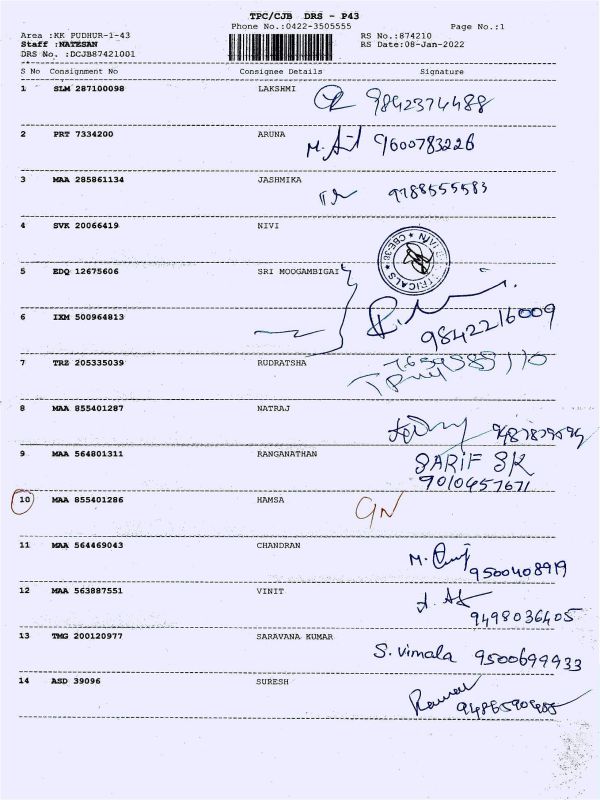 TPC/CJB DRS - P43
Phone No.:0422-3505555 Page No.:1
Area :KK PUDHUR-1-43 RS No.:874210
Staff :NATESAN RS Date:08-Jan-2022
DRS No. :DCJB87421001
S No Consignment No Consignee Details Signature
1 SLM 287100098 LAKSHMI 9842374488
2 PRT 7334200 ARUNA 9600783226
3 MAA 285861134 JASHMIKA 9788555583
4 SVK 20066419 NIVI
5 EDQ 12675606 SRI MOOGAMBIGAI
6 IXM 500964813 9842216009
7 TRZ 205335039 RUDRATSHA
8 MAA 855401287 NATRAJ
9 MAA 564801311 RANGANATHAN SARIF SK
9010457671
10 MAA 855401286 HAMSA
11 MAA 564469043 CHANDRAN
9500408919
12 MAA 563887551 VINIT
9498036405
13 TMG 200120977 SARAVANA KUMAR
S. Vimala 9500699933
14 ASD 39096 SURESH